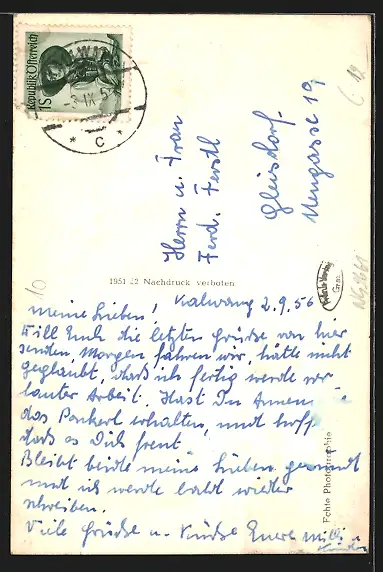 Republik Österreich
1S
C
Herrn u. Frau
Ferd. Ferstl
Gleisdorf
Neugasse 19
1951 52 Nachdruck verboten
Kalwang 2.9.56
Meine Lieben!
Will Euch die letzten Grüße von hier
senden. Morgen fahren wir, hätte nicht
geglaubt, daß ich fertig werde vor
lauter Arbeit. Hast Du
das Packerl erhalten, und hoffe
daß es Dich freut
Bleibt beide meine Lieben gesund
und ich werde bald wieder
schreiben.
Viele Grüße u. Küsse Eure
Echte Photographie